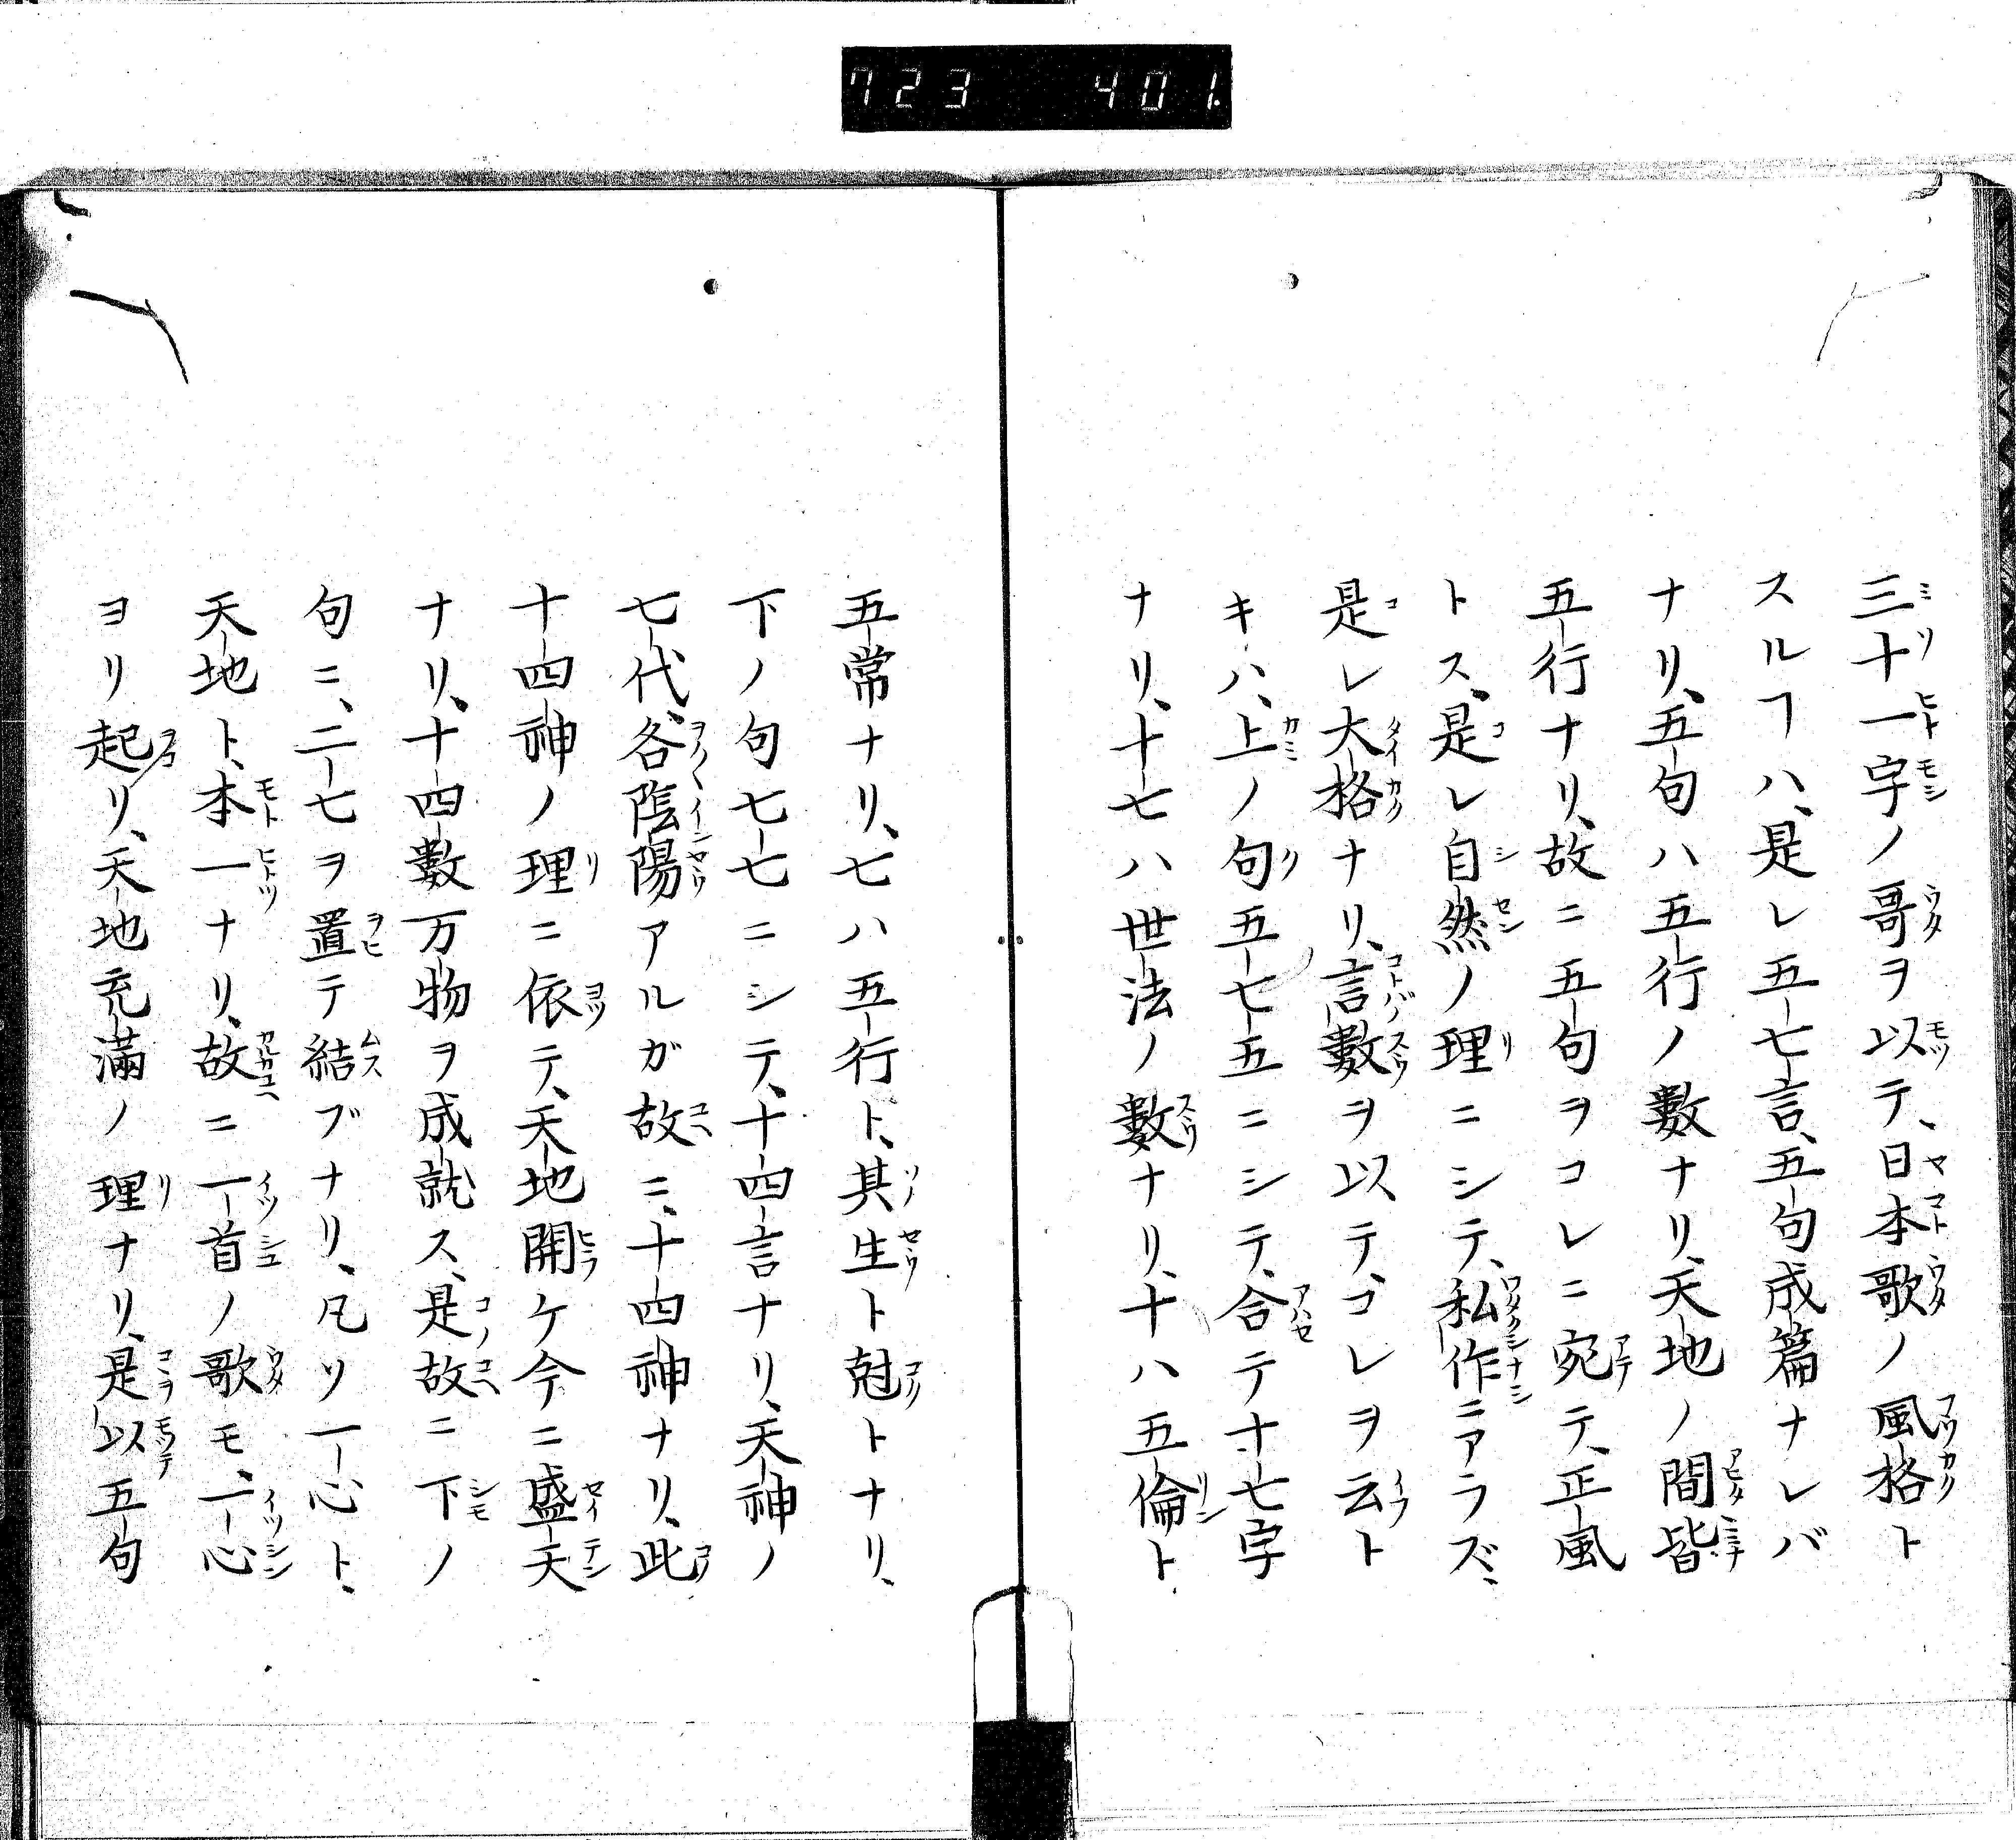 723 401.
三十一字ノ哥ヲ以テ、日本歌ノ風格ト
スルヿハ、是レ五七言、五句成篇ナレバ
ナリ、五句ハ五行ノ數ナリ、天地ノ間皆
五行ナリ、故ニ五句ヲコレニ宛テ、正風
トス、是レ自然ノ理ニシテ、私作ニアラズ、
是レ大格ナリ、言數ヲ以テ、コレヲ云ト
キハ、上ノ句五七五ニシテ、合テ十七字
ナリ、十七ハ世法ノ數ナリ、十ハ五倫ト
五常ナリ、七ハ五行ト、其生ト尅トナリ、
下ノ句七七ニシテ、十四言ナリ、天神ノ
七代、各陰陽アルガ故ニ、十四神ナリ、此
十四神ノ理ニ依テ、天地開ケ今ニ盛天
ナリ、十四數万物ヲ成就ス、是故ニ下ノ
句ニ、二七ヲ置テ結ブナリ、凡ソ一心ト、
天地ト、本一ナリ、故ニ一首ノ歌モ、一心
ヨリ起リ、天地充滿ノ理ナリ、是以五句